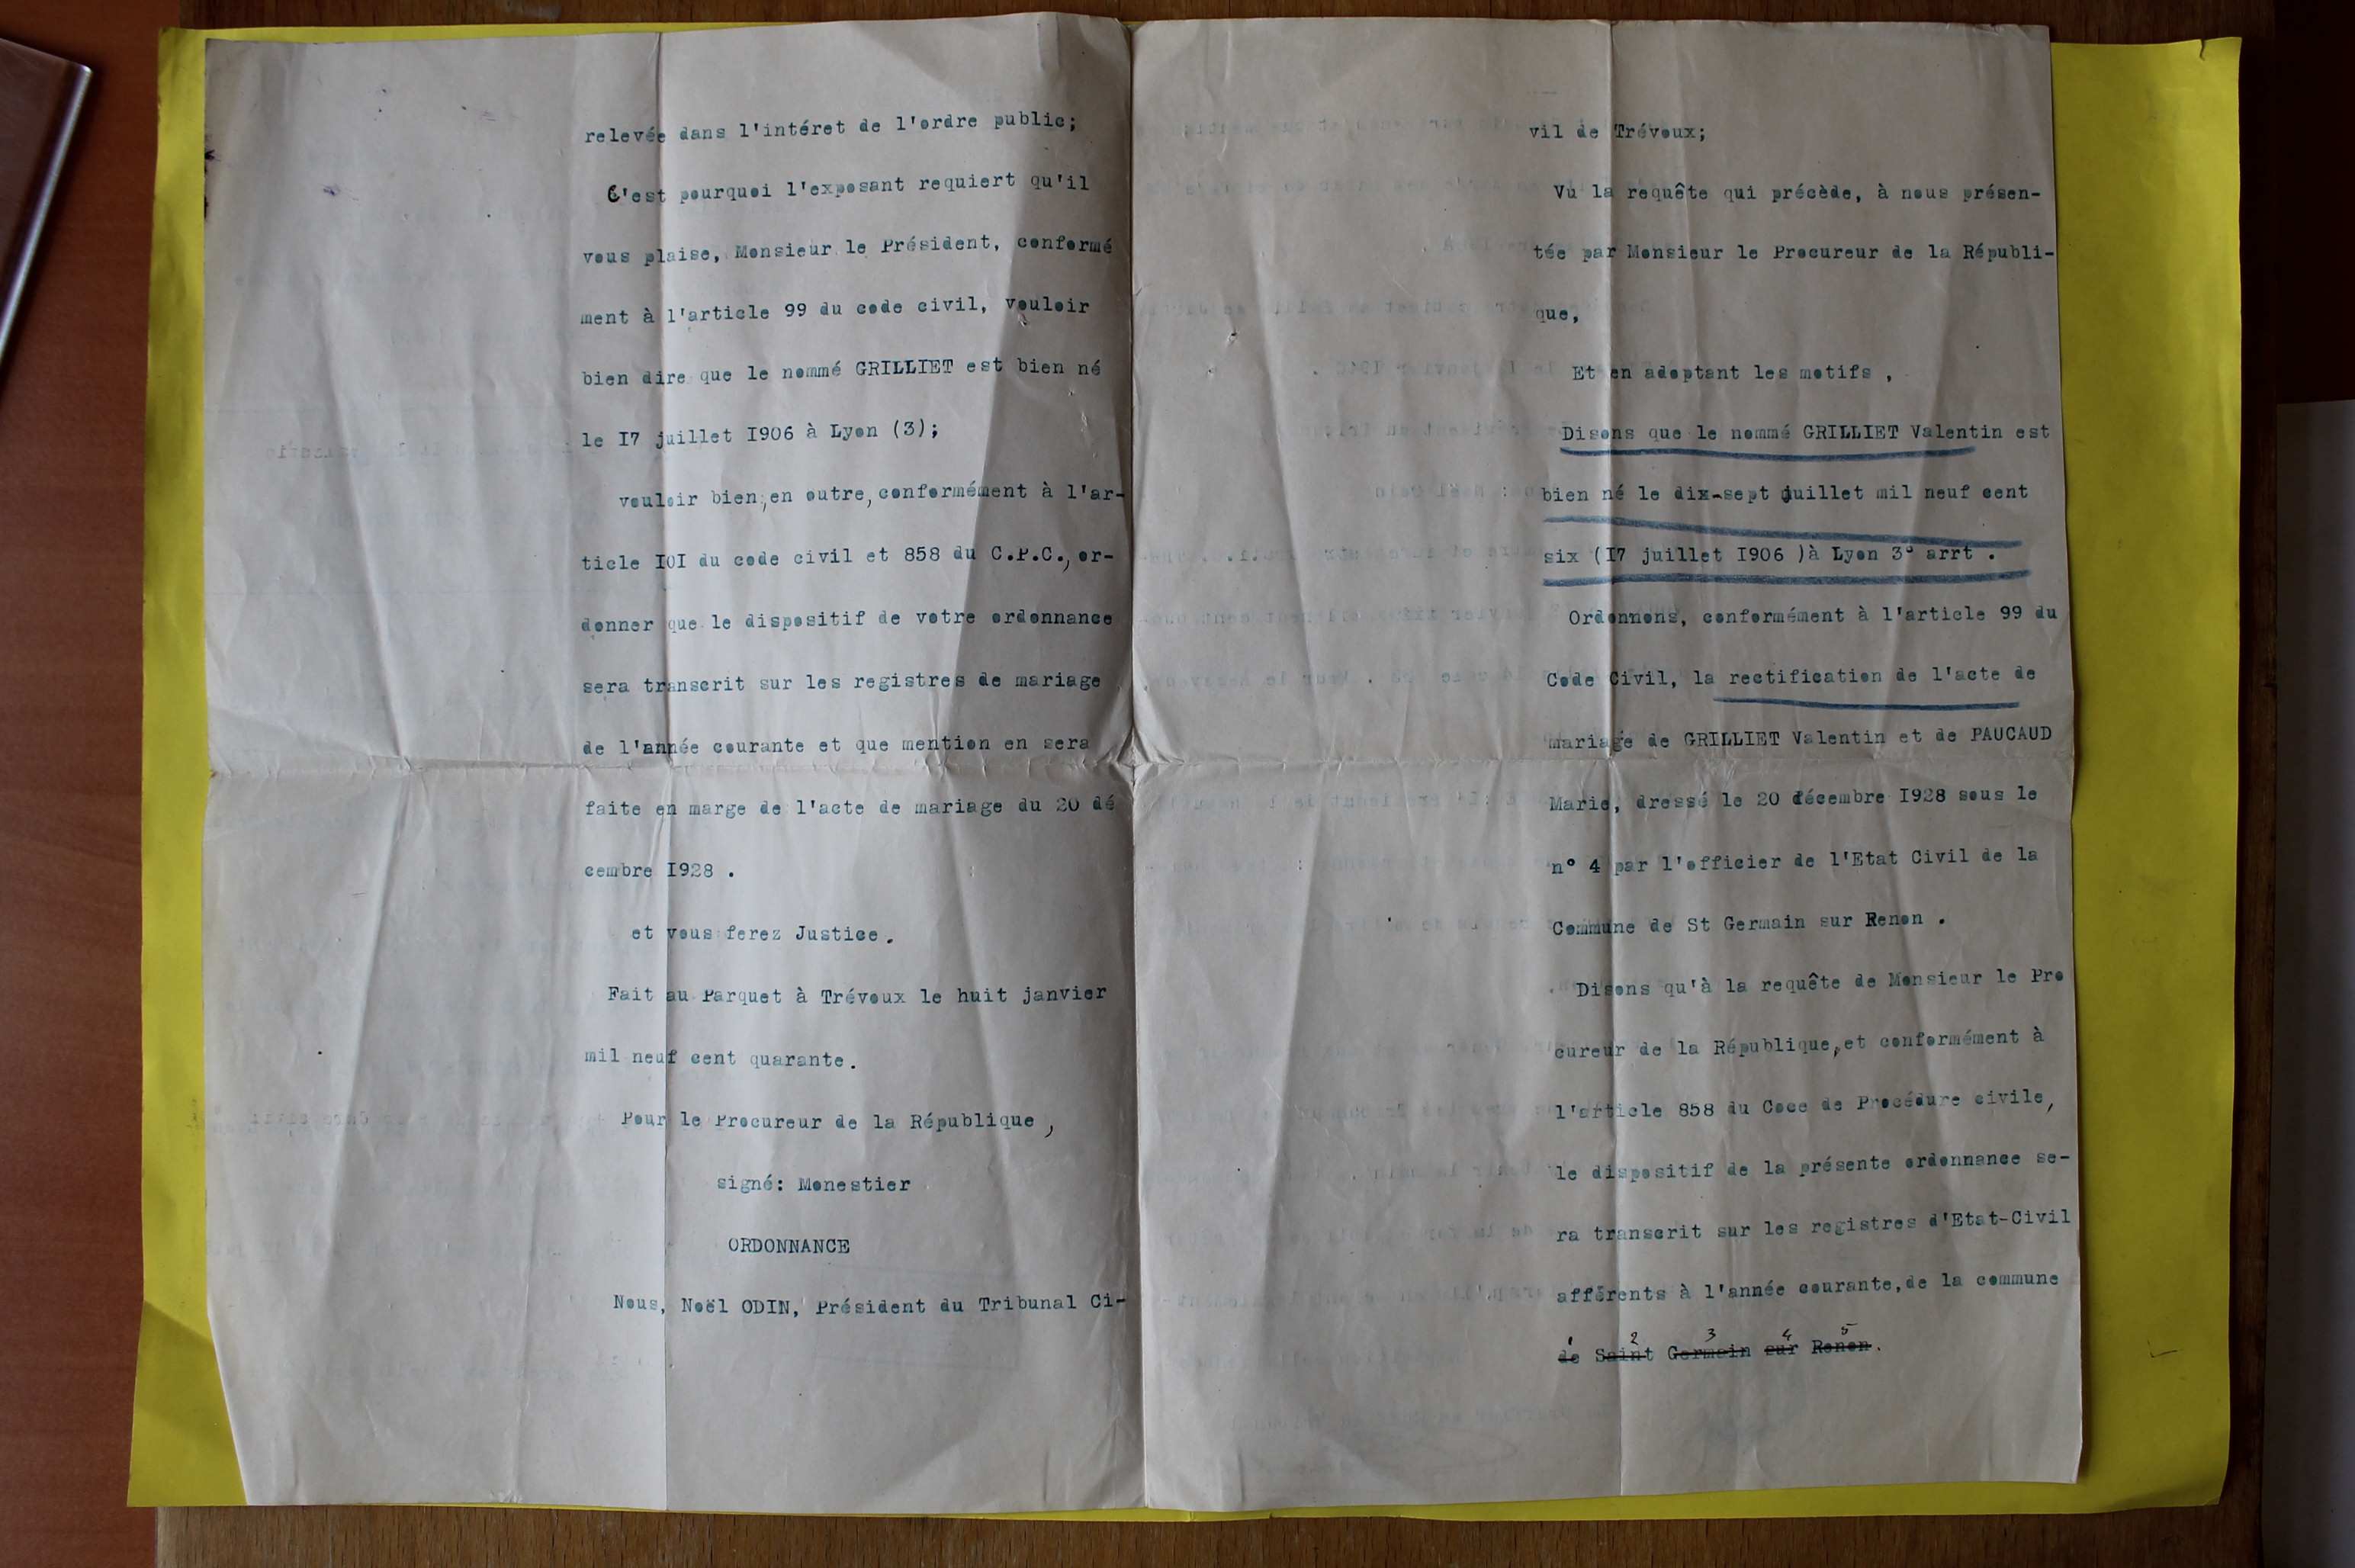 relevée dans l'intéret de l'ordre public;
C'est pourquoi l'exposant requiert qu'il
vous plaise, Monsieur le Président, conformé
ment à l'article 99 du code civil, vouloir
bien dire que le nommé GRILLIET est bien né
le I7 juillet I906 à Lyon (3);
vouloir bien, en outre, conformément à l'ar-
ticle IOI du code civil et 858 du C.P.C., or-
donner que le dispositif de votre ordonnance
sera transcrit sur les registres de mariage
de l'année courante et que mention en sera
faite en marge de l'acte de mariage du 20 dé
cembre I928 .
et vous ferez Justice.
Fait au Parquet à Trévoux le huit janvier
mil neuf cent quarante.
Pour le Procureur de la République,
signé: Monestier
ORDONNANCE
Nous, Noël ODIN, Président du Tribunal Ci-
vil de Trévoux;
Vu la requête qui précède, à nous présen-
tée par Monsieur le Procureur de la Républi-
que,
Et en adoptant les motifs ,
Disons que le nommé GRILLIET Valentin est
bien né le dix-sept juillet mil neuf cent
six (I7 juillet I906 )à Lyon 3° arrt .
Ordonnons, conformément à l'article 99 du
Code Civil, la rectification de l'acte de
mariage de GRILLIET Valentin et de PAUCAUD
Marie, dressé le 20 décembre I928 sous le
n° 4 par l'officier de l'Etat Civil de la
Commune de St Germain sur Renon .
Disons qu'à la requête de Monsieur le Pro
cureur de la République, et conformément à
l'article 858 du Coce de Procédure civile,
le dispositif de la présente ordonnance se-
ra transcrit sur les registres d'Etat-Civil
afférents à l'année courante, de la commune
1 2 3 4 5
de Saint Germain sur Renon.